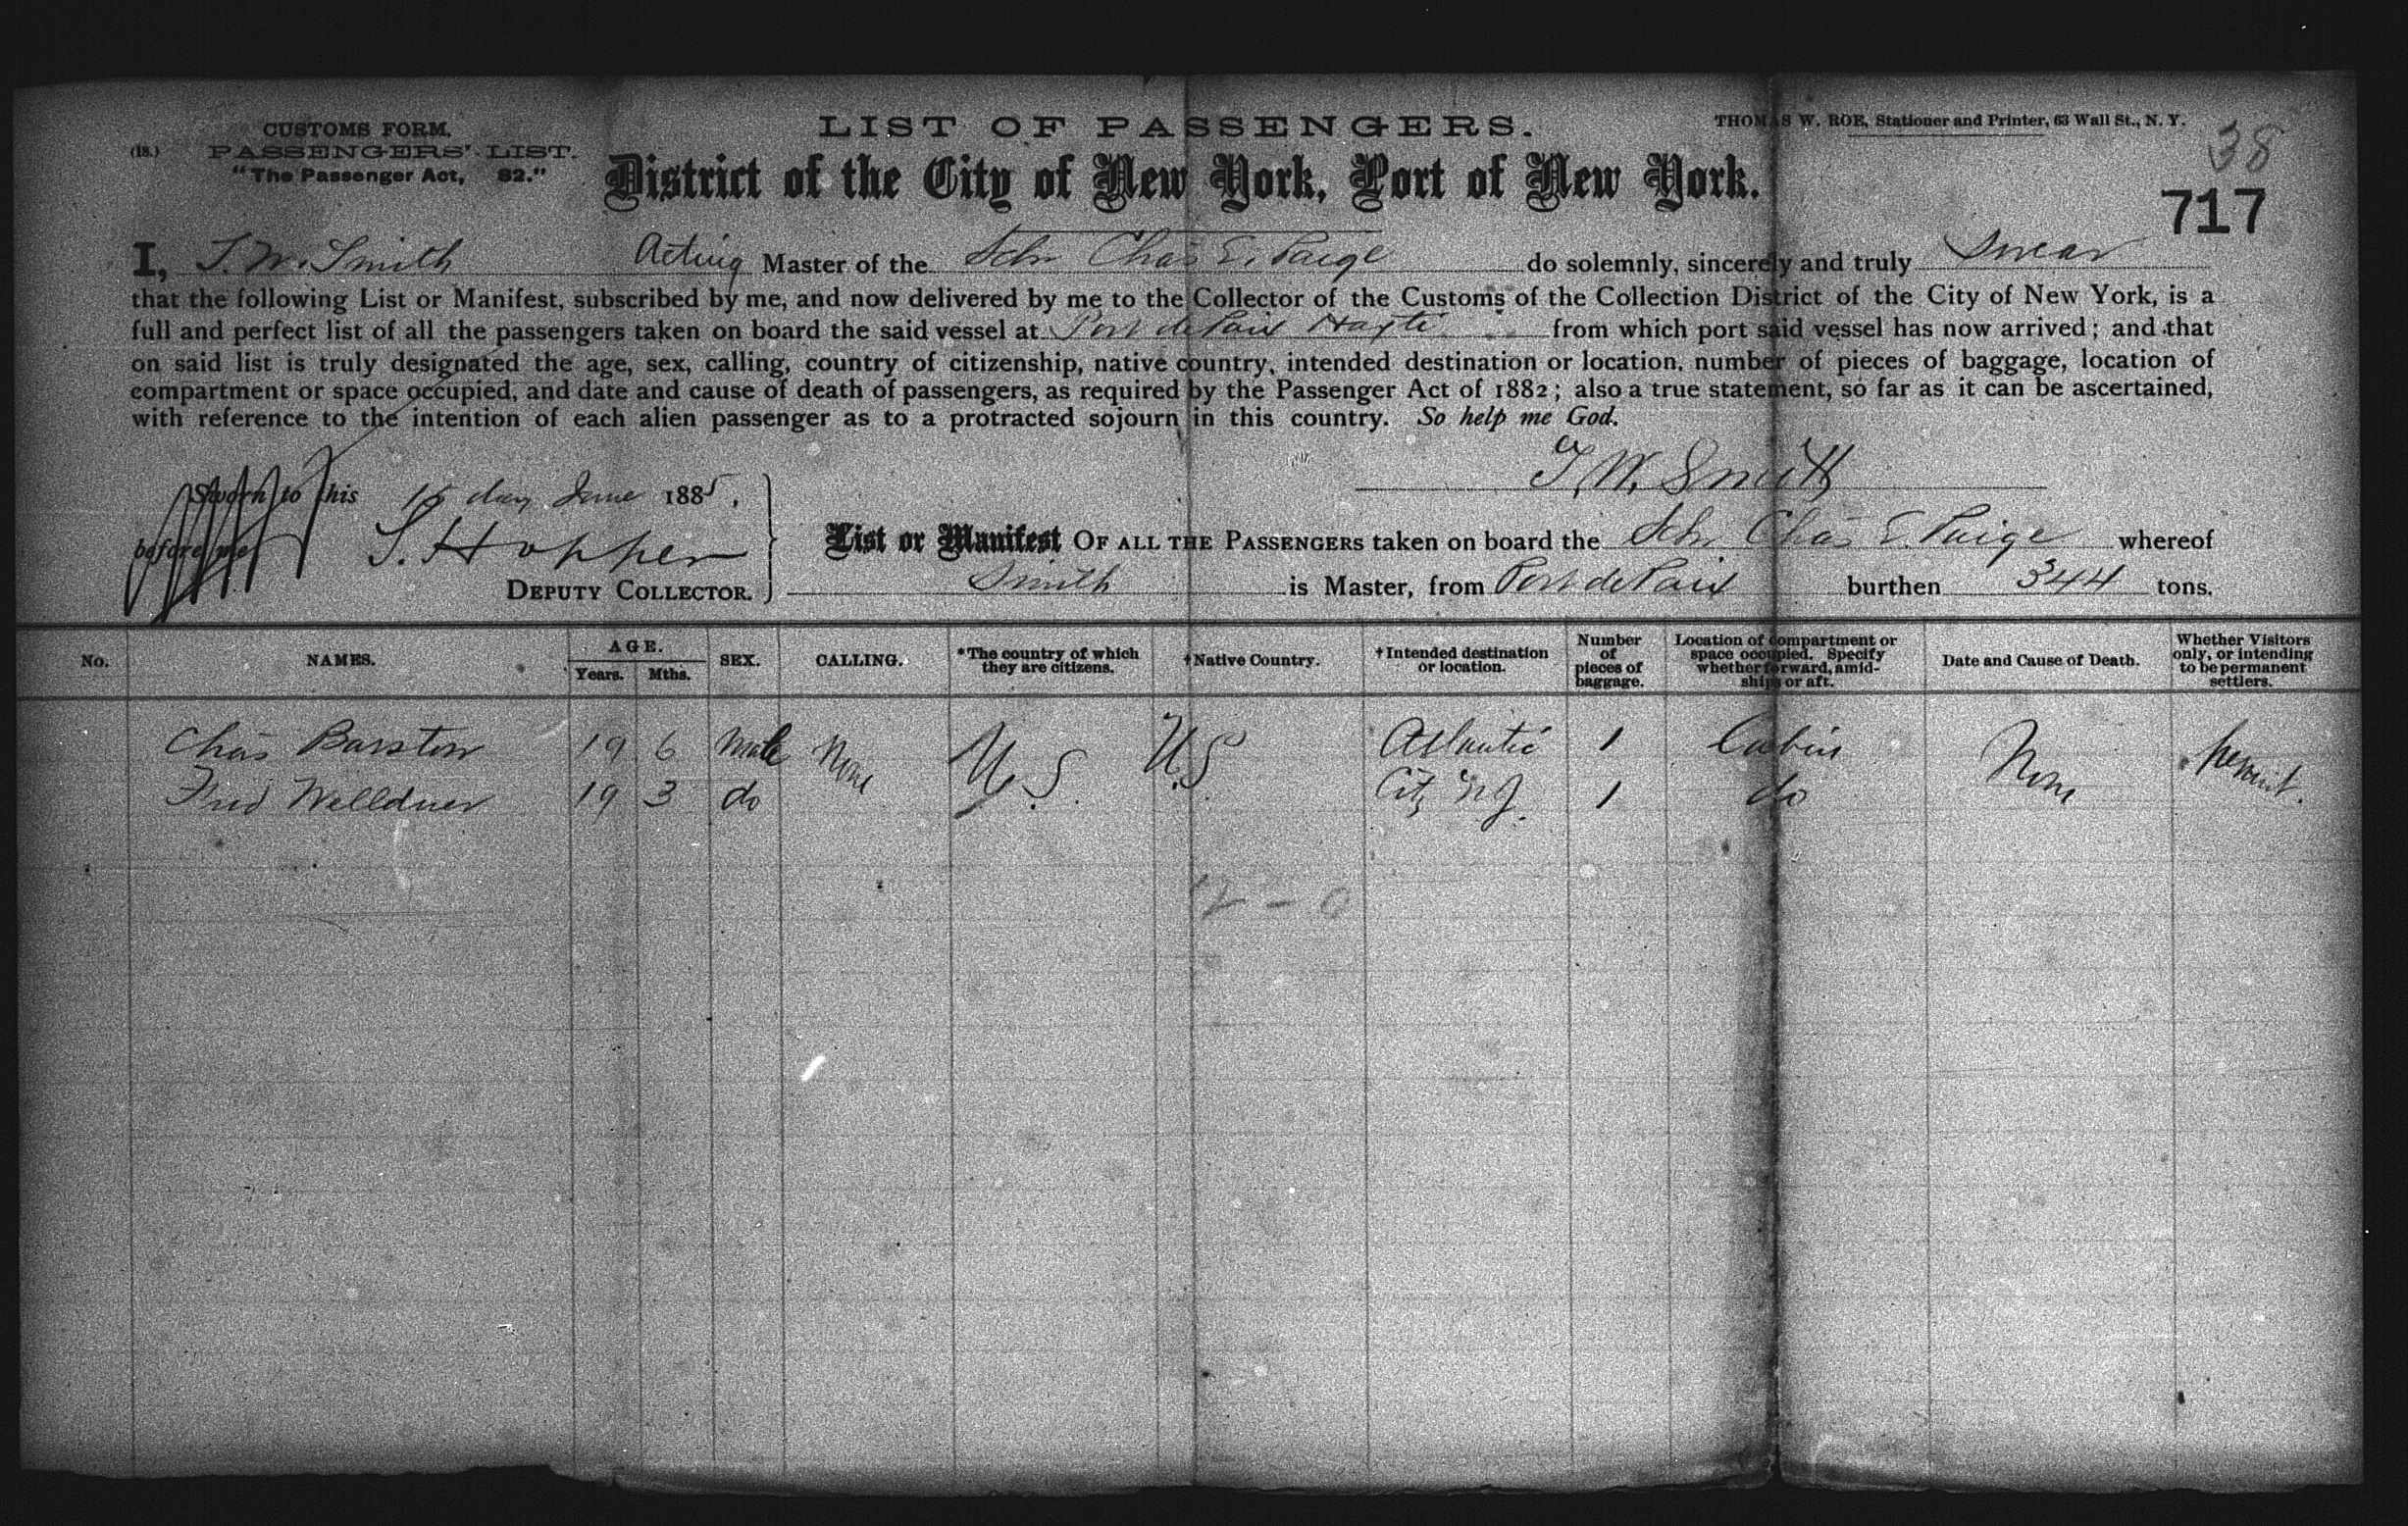 CUSTOMS FORM.
(18.) PASSENGERS' LIST.
"The Passenger Act, 82."
LIST OF PASSENGERS.
THOMAS W. ROE, Stationer and Printer, 63 Wall St., N. Y.
38
District of the City of New York, Port of New York.
717
I, T. W. Smith Acting Master of the Schr Chas E. Paige do solemnly, sincerely and truly swear
that the following List or Manifest, subscribed by me, and now delivered by me to the Collector of the Customs of the Collection District of the City of New York, is a
full and perfect list of all the passengers taken on board the said vessel at Port de Paix Hayti from which port said vessel has now arrived; and that
on said list is truly designated the age, sex, calling, country of citizenship, native country, intended destination or location, number of pieces of baggage, location of
compartment or space occupied, and date and cause of death of passengers, as required by the Passenger Act of 1882; also a true statement, so far as it can be ascertained,
with reference to the intention of each alien passenger as to a protracted sojourn in this country. So help me God.
T. W. Smith
Sworn to this 15 day June 1885,
before me S. Hopper
DEPUTY COLLECTOR.
List or Manifest OF ALL THE PASSENGERS taken on board the Schr Chas E. Paige whereof
Smith is Master, from Port de Paix burthen 344 tons.
No. NAMES. AGE. Years. Mths. SEX. CALLING. *The country of which they are citizens. †Native Country. †Intended destination or location. Number of pieces of baggage. Location of compartment or space occupied. Specify whether forward, amidships or aft. Date and Cause of Death. Whether Visitors only, or intending to be permanent settlers.
Chas Barstow 19 6 Male None U.S. U.S. Atlantic 1 Cabin None permt.
Fred 19 3 do City N J. 1 do
2 - 0